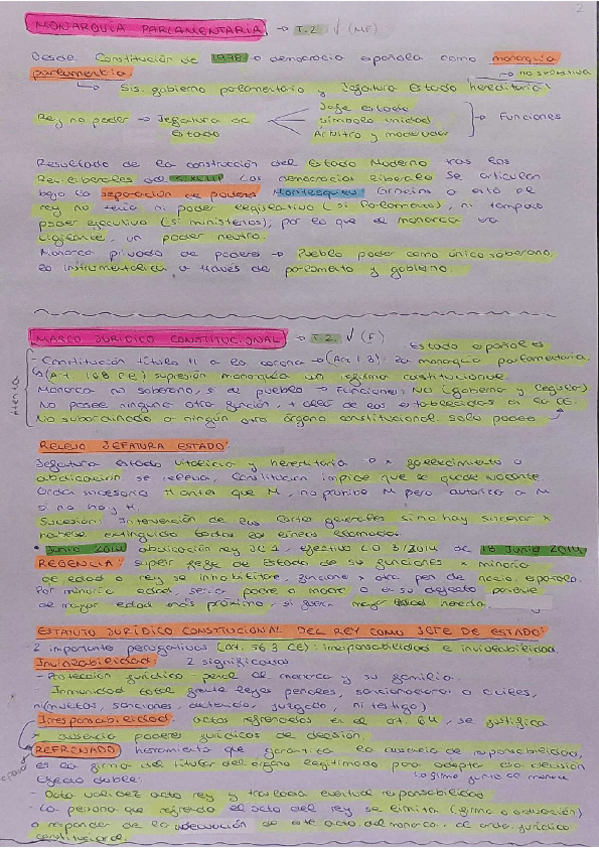 2
MONARQUÍA PARLAMENTARIA → T.2 ↓ (MF)
Desde Constitución de 1978 → democracia española como monarquía
parlamentaria → no
↳ Sis. gobierno parlamentario y Jefatura Estado hereditaria
Rey no poder → Jefatura de Estado
Jefe Estado
Símbolo unidad
Árbitro y moderador
→ Funciones
Resultado de la construcción del Estado Moderno tras las
Rev. liberales del S. XVIII Las democracias liberales se articulan
bajo la separación de poderes Montesquieu
rey no tenía ni poder legislativo (si Parlamentos), ni tampoco
poder ejecutivo (si ministerios), por lo que el monarca era
vigilante, un poder neutro.
Monarca privado de poderes → Pueblo poder como único soberano,
lo instrumentaliza a través de parlamento y gobierno.
MARCO JURÍDICO CONSTITUCIONAL → T.2 ↓ (F)
Estado español es
- Constitución título II a la corona → (Art 1.3): la monarquía parlamentaria
↳ (Art 168 CE) supresión monarquía
Monarca no soberano, si el pueblo → Funciones: NO (gobierna y legisla)
No posee ninguna otra función, + allá de las establecidas en la CE.
No subordinado a ningún otro órgano constitucional. Solo posee
RELEVO JEFATURA ESTADO:
Jefatura estado vitalicia y hereditaria → x fallecimiento o
abdicación se releva, Constitución impide que se quede vacante.
Orden sucesorio H antes que M, no prohibe M pero autoriza a M
si no hay H.
Sucesión: Intervención de las Cortes generales si no hay sucesor x
haberse extinguido todas las líneas llamadas.
• Junio 2014 abdicación rey JC I, efectivo LO 3/2014 de 18 Junio 2014
REGENCIA: suplir Jefe de Estado de su funciones x minoría
de edad o rey se inhabilitare, funciones x otra per de nacio. española.
Por minoría edad, sería padre o madre o en su defecto pariente
de mayor edad más próximo, si fuera mayor edad hereda.
ESTATUTO JURÍDICO CONSTITUCIONAL DEL REY COMO JEFE DE ESTADO:
2 importante prerrogativas (art. 56.3 CE): irresponsabilidad e inviolabilidad
Inviolabilidad: 2 significados
- Protección jurídico-penal al monarca y su familia.
- Inmunidad total frente leyes penales, sancionadoras o civiles,
ni (multas, sanciones, detenido, juzgado, ni testigo)
Irresponsabilidad: actos refrendados en el art. 64, se justifica
x ausencia poderes jurídicos de decisión.
REFRENDADO herramienta que garantiza la ausencia de responsabilidad,
es la firma del titular del órgano legitimado para adoptar esa decisión
Efecto doble: la firma junto al monarca
- Dota validez acto rey y traslada eventual responsabilidad
- La persona que refrenda el acto del rey se limita (firma o actuación)
a responder de la adecuación de este acto del monarca al orde. jurídico
constitucional.